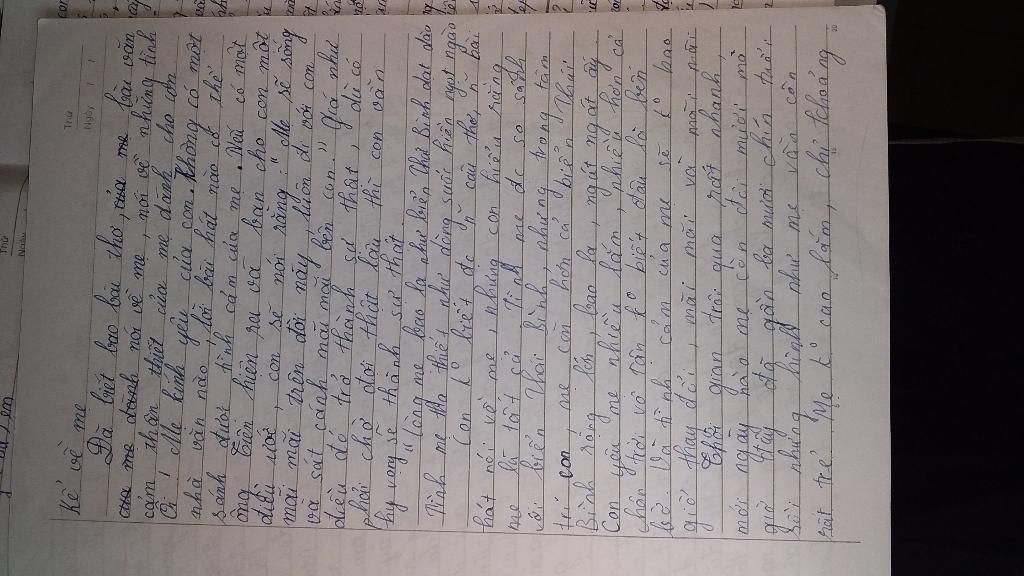 Thứ
Ngày
Kể về mẹ
Đã biết bao bài thơ, của mẹ hay văn
của mẹ dành nói về mẹ, nói về những tình
cảm thân thiết của mẹ dành cho con
Ôi! Mẹ kính yêu của con. Không có một
nhà văn nào, lời bài hát nào có thể
sánh được tình cảm của mẹ. Nếu có một
ông Tiên hiện ra và ban cho con một
điều ước, con sẽ nói rằng: "Mẹ sẽ sống
mãi mãi trên đời này, luôn đi với con
và sát cánh mãi mãi bên con." Giá như
điều đó trở thành sự thật, dù có
phải chờ đợi thật lâu thì con vẫn
hy vọng sẽ thành sự thật.
"Lòng mẹ bao la như biển Thái Bình dạt dào
Tình mẹ tha thiết như dòng suối hiền ngọt ngào"
Con k biết đc những câu thơ, bài
hát nói về mẹ, nhưng con hiểu rằng
mẹ là tất cả. Tình mẹ đc so sánh
với biển Thái Bình, nhưng trong tâm
trí con, mẹ còn hơn cả biển Thái
Bình rộng lớn, bao la, ngút ngát ấy.
Con yêu mẹ nhiều lắm, nhiều hơn cả
chân trời vô tận k biết đâu là bến
bờ. Và tình cảm của mẹ sẽ k bao
giờ thay đổi, mãi mãi và mãi mãi.
Thời gian trôi qua rất nhanh,
mới ngày nào mẹ còn đôi mươi mà
giờ đây đã gần ba mươi chín tuổi
rồi nhưng hình như mẹ vẫn còn
rất trẻ. Mẹ k cao lắm, chỉ khoảng